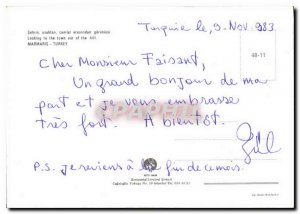 Şehrin, uzaktan, çamlar arasından görünüşü
Looking to the town out of the hill.
MARMARIS - TURKEY
Turquie le, 9 Nov. 983
48-11
Cher Monsieur Faisant,
Un grand bonjour de ma
part et je vous embrasse
très fort. A bientôt.
Gill
P.S. je reviens à la fin de ce mois.